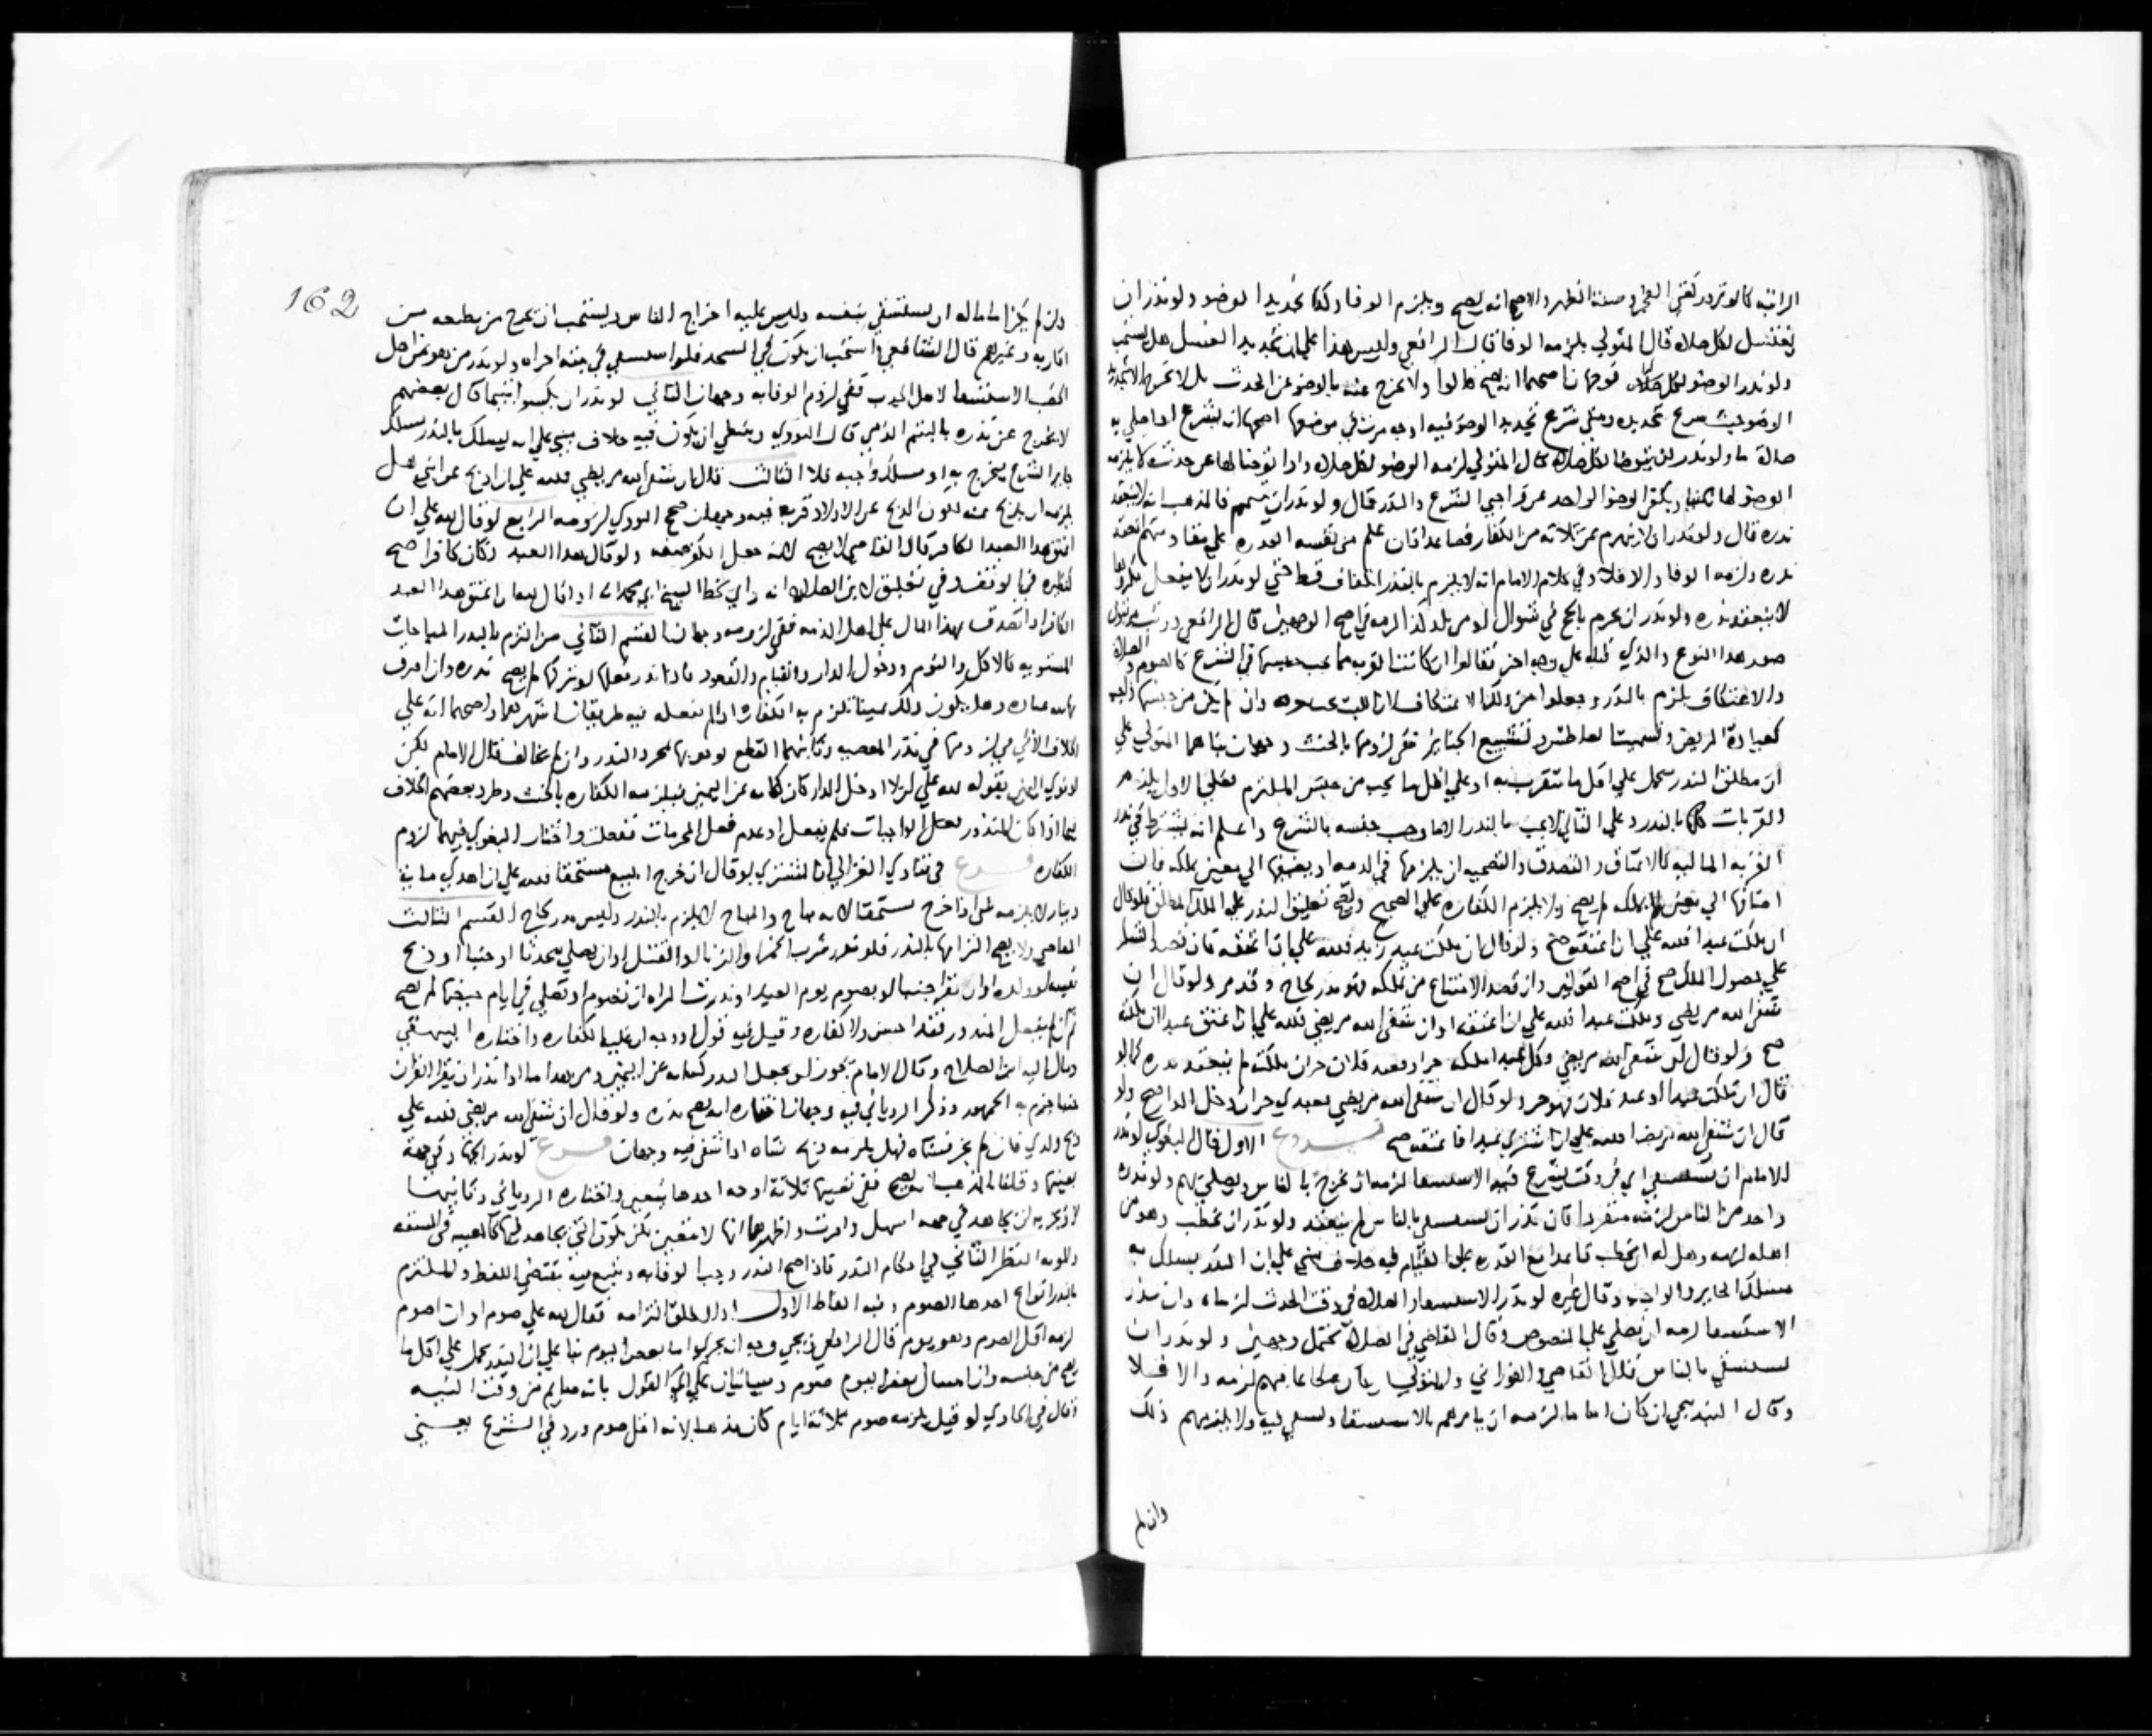 الراتبة كالوتر وركعتي الفجر وسنة الظهر والاصح انه يصح ويلزم الوفا وكذا تجديد الوضو ولو نذر ان
يغتسل لكل صلاة قال المتولي يلزمه الوفا قال الرافعي وليبن هذا علي ان تجديد الغسل هل يستحب
ولو نذر الوضو لكل صلاة فوجهان اصحهما انه يصح قالوا ولا يخرج عنه بالوضو عن الحدث بل لا يخرج الا بتجديد
الوضو حيث يشرع تجديده ومتي شرع تجديد الوضو فيه اوجه مرت في موضعها اصحها انه يشرع اذا صلي به
صلاة ما ولو نذر ان يتوضا لكل صلاة قال المتولي لزمه الوضو لكل صلاة واذا توضا لها عن حدث لا يلزمه
الوضو لها ثانيا ويكفي الوضو الواحد عن واجبي الشرع والنذر قال ولو نذر ان يتيمم فالمذهب انه لا ينعقد
نذره قال ولو نذر ان لا ينهزم من ثلاثة من الكفار فصاعدا فان علم من نفسه القدرة علي مقاومتهم انعقد
نذره ولزمه الوفا والا فلا وفي كلام الامام انه لا يلزم بالنذر انكفاف قط حتي لو نذر ان لا يفعل مكروها
لا ينعقد نذره ولو نذر ان يحرم بالحج في شوال او من بلد كذا لزمه في اصح الوجهين قال الرافعي
صور هذا النوع والذي قبله علي وجه اخر فقالوا ان كانت القرب مما يجب جنسها في الشرع كالصوم والصلاة
والاعتكاف يلزم بالنذر وجعلوا من ذلك الاعتكاف لان اللبث وان لم يكن من جنسها واجب
كعيادة المريض وتشميت العاطس وتشييع الجنايز ففي لزومها بالنذر وجهان بناهما المتولي علي
ان مطلق النذر يحمل علي اقل ما يتقرب به او علي اقل ما يجب من جنس الملتزم فعلي الاول يلزم
والقربات كلها بالنذر وعلي الثاني لا يجب بالنذر الا ما وجب جنسه بالشرع واعلم انه يشترط في نذر
القربة المالية كالاعتاق والتصدق والتضحية ان يلزمها في الذمة او يضيفها الي معين يملكه فان
اضافها الي معين لا يملكه لم يصح ولا يلزم الكفارة علي الصحيح ويصح تعليق النذر علي الملك المطلق فلو قال
ان ملكت عبدا فلله علي ان اعتقه صح ولو قال ان ملكت عبد زيد فلله علي ان اعتقه فان قصد الشكر
علي حصول الملك صح في اصح القولين وان قصد الامتناع من تملكه فهو نذر لجاج وقد مر ولو قال ان
شفي الله مريضي وملكت عبدا فلله علي ان اعتقه او ان شفي الله مريضي فلله علي ان اعتق عبدا ان ملكته
صح ولو قال ان شفي الله مريضي وكل عبد املكه حر او فعبد فلان حر ان ملكته لم ينعقد نذره كما لو
قال ان ملكت عبدا او عبد فلان فهو حر ولو قال ان شفي الله مريضي فعبدي حر ان دخل الدار صح ولو
قال ان شفي الله مريضي فلله علي ان اشتري عبدا فاعتقه صح فروع الاول قال البغوي لو نذر
الامام ان يستسقي اي في وقت يشرع فيه الاستسقا لزمه ان يخرج بالناس ويصلي بهم ولو نذره
واحد من الناس لزمه منفردا فان نذر ان يستسقي بالناس لم ينعقد ولو نذر ان يخطب وهو من
اهله لزمه وهل له ان يخطب قاعدا مع القدرة علي القيام فيه خلاف مبني علي ان النذر يسلك به
مسلك الجايز او الواجب وقال غيره لو نذر الاستسقا والصلاة في وقت الحدث لزماه وان نذر
الاستسقا لزمه ان يصلي علي المنصوص وقال القاضي في الصلاة يحتمل وجهين ولو نذر ان
يستسقي بالناس قال القاضي والفوراني والمتولي ان كان مطاعا فيهم لزمه والا فلا
وقال البندنيجي ان كان اماما لزمه ان يامرهم بالاستسقا ويستسقي ولا يلزمهم ذلك
وان لم
162
وان لم يكن اماما له ان يستسقي بنفسه وليس عليه اخراج الناس ويستحب ان يخرج من يطيعه من
اقاربه وغيرهم قال الشافعي واستحب ان يكون في المسجد فلو استسقي في بيته اجزاه ولو نذر من هو من اهل
الخصب الاستسقا لاهل الجدب ففي لزوم الوفا به وجهان الثاني لو نذر ان يكسوا يتيما قال بعضهم
لا يخرج عن نذره باليتيم الذمي قال النووي وينبغي ان يكون فيه خلاف مبني علي انه يسلك بالنذر مسلك
جايز الشرع فيخرج به او مسلك واجبه فلا الثالث قال ان شفي الله مريضي فلله علي ان اذبح عن ابني هل
يلزمه ان يذبح عنه لكون الذبح عن الاولاد قربة فيه وجهان صحح النووي لزومه الرابع لو قال لله علي ان
اعتق هذا العبد الكافر قال القاضي لا يصح لانه جعل الكفر صفة ولو قال هذا العبد وكان كافرا صح
الكافر او اتصدق بهذا المال علي اهل الذمة ففي لزومه وجهان القسم الثاني من الملتزم بالنذر المباحات
المستوية كالاكل والنوم ودخول الدار والقيام والقعود فاذا نذر فعلها او تركها لم يصح نذره وان اقترن
بها نية عبادة وهل يكون ذلك يمينا تلزم به الكفارة اذا لم يفعله فيه طريقان اشهرهما واصحهما انه علي
الخلاف الاتي في لزومها في نذر المعصية وثانيهما القطع لوجوبها بمجرد النذر وان لم يخالف قال الامام لكن
لو نوي اليمين بقوله لله علي ان لا ادخل الدار كان كناية عن اليمين فيلزمه الكفارة بالحنث وطرد بعضهم الخلاف
فيما اذا كان المنذور فعل الواجبات فلم يفعل او عدم فعل المحرمات ففعلت واختار البغوي فيهما لزوم
الكفارة فرع في فتاوي الغزالي ان المشتري لو قال ان خرج المبيع مستحقا فلله علي ان اهدي ماية
دينار لا يلزمه شي اذا خرج مستحقا لانه مباح والمباح لا يلزم بالنذر وليس نذر لجاج القسم الثالث
المعاصي ولا يصح التزامها بالنذر فلو نذر شرب الخمر والزنا او القتل او ان يصلي محدثا او جنبا او ذبح
نفسه او ولده او ان يقرا جنبا او يصوم يوم العيد او نذرت المراة ان تصوم او تصلي في ايام حيضها لم يصح
ثم ان لم يفعل المنذور فقد احسن ولا كفارة وقيل فيه قول او وجه ان عليه الكفارة واختاره البيهقي
ومال اليه ابن الصلاح وقال الامام يجوز ان يجعل النذر كناية عن اليمين ومر بعدها اما اذا نذر ان يقرا القران
جنبا جزم به الجمهور وذكر الروياني فيه وجهان اختاره انه يصح نذره ولو قال ان شفي الله مريضي فلله علي
ذبح ولدي فان لم يجز فشاة فهل يلزمه ذبح شاة اذا شفي فيه وجهان فرع لو نذر الجهاد في جهة
بعينها وقلنا المذهب انه يصح ففي تعيينها ثلاثة اوجه احدها يتعين واختاره الروياني وثانيها
لا ويجزيه ان يجاهد في جهة اسهل واقرب واظهرها انها لا تتعين لكن تكون التي يجاهد فيها كالمعينة في المسافة
والمونة النظر الثاني في احكام النذر فاذا صح النذر وجب الوفا به ويتبع فيه مقتضي اللفظ والملتزم
بالنذر انواع احدها الصوم وفيه الفاظ الاول اذا اطلق التزامه فقال لله علي صوم او ان اصوم
لزمه اقل الصوم وهو يوم قال الرافعي ويجي وجه انه يجزي امساك بعض اليوم بنا علي ان النذر يحمل علي اقل ما
يصح من جنسه وان امساك بعض اليوم صوم وسياتيان علي القول بانه صايم من وقت النية
وقال في الحاوي لو قيل يلزمه صوم ثلاثة ايام كان مذهبا لانه اقل صوم ورد في الشرع يعني